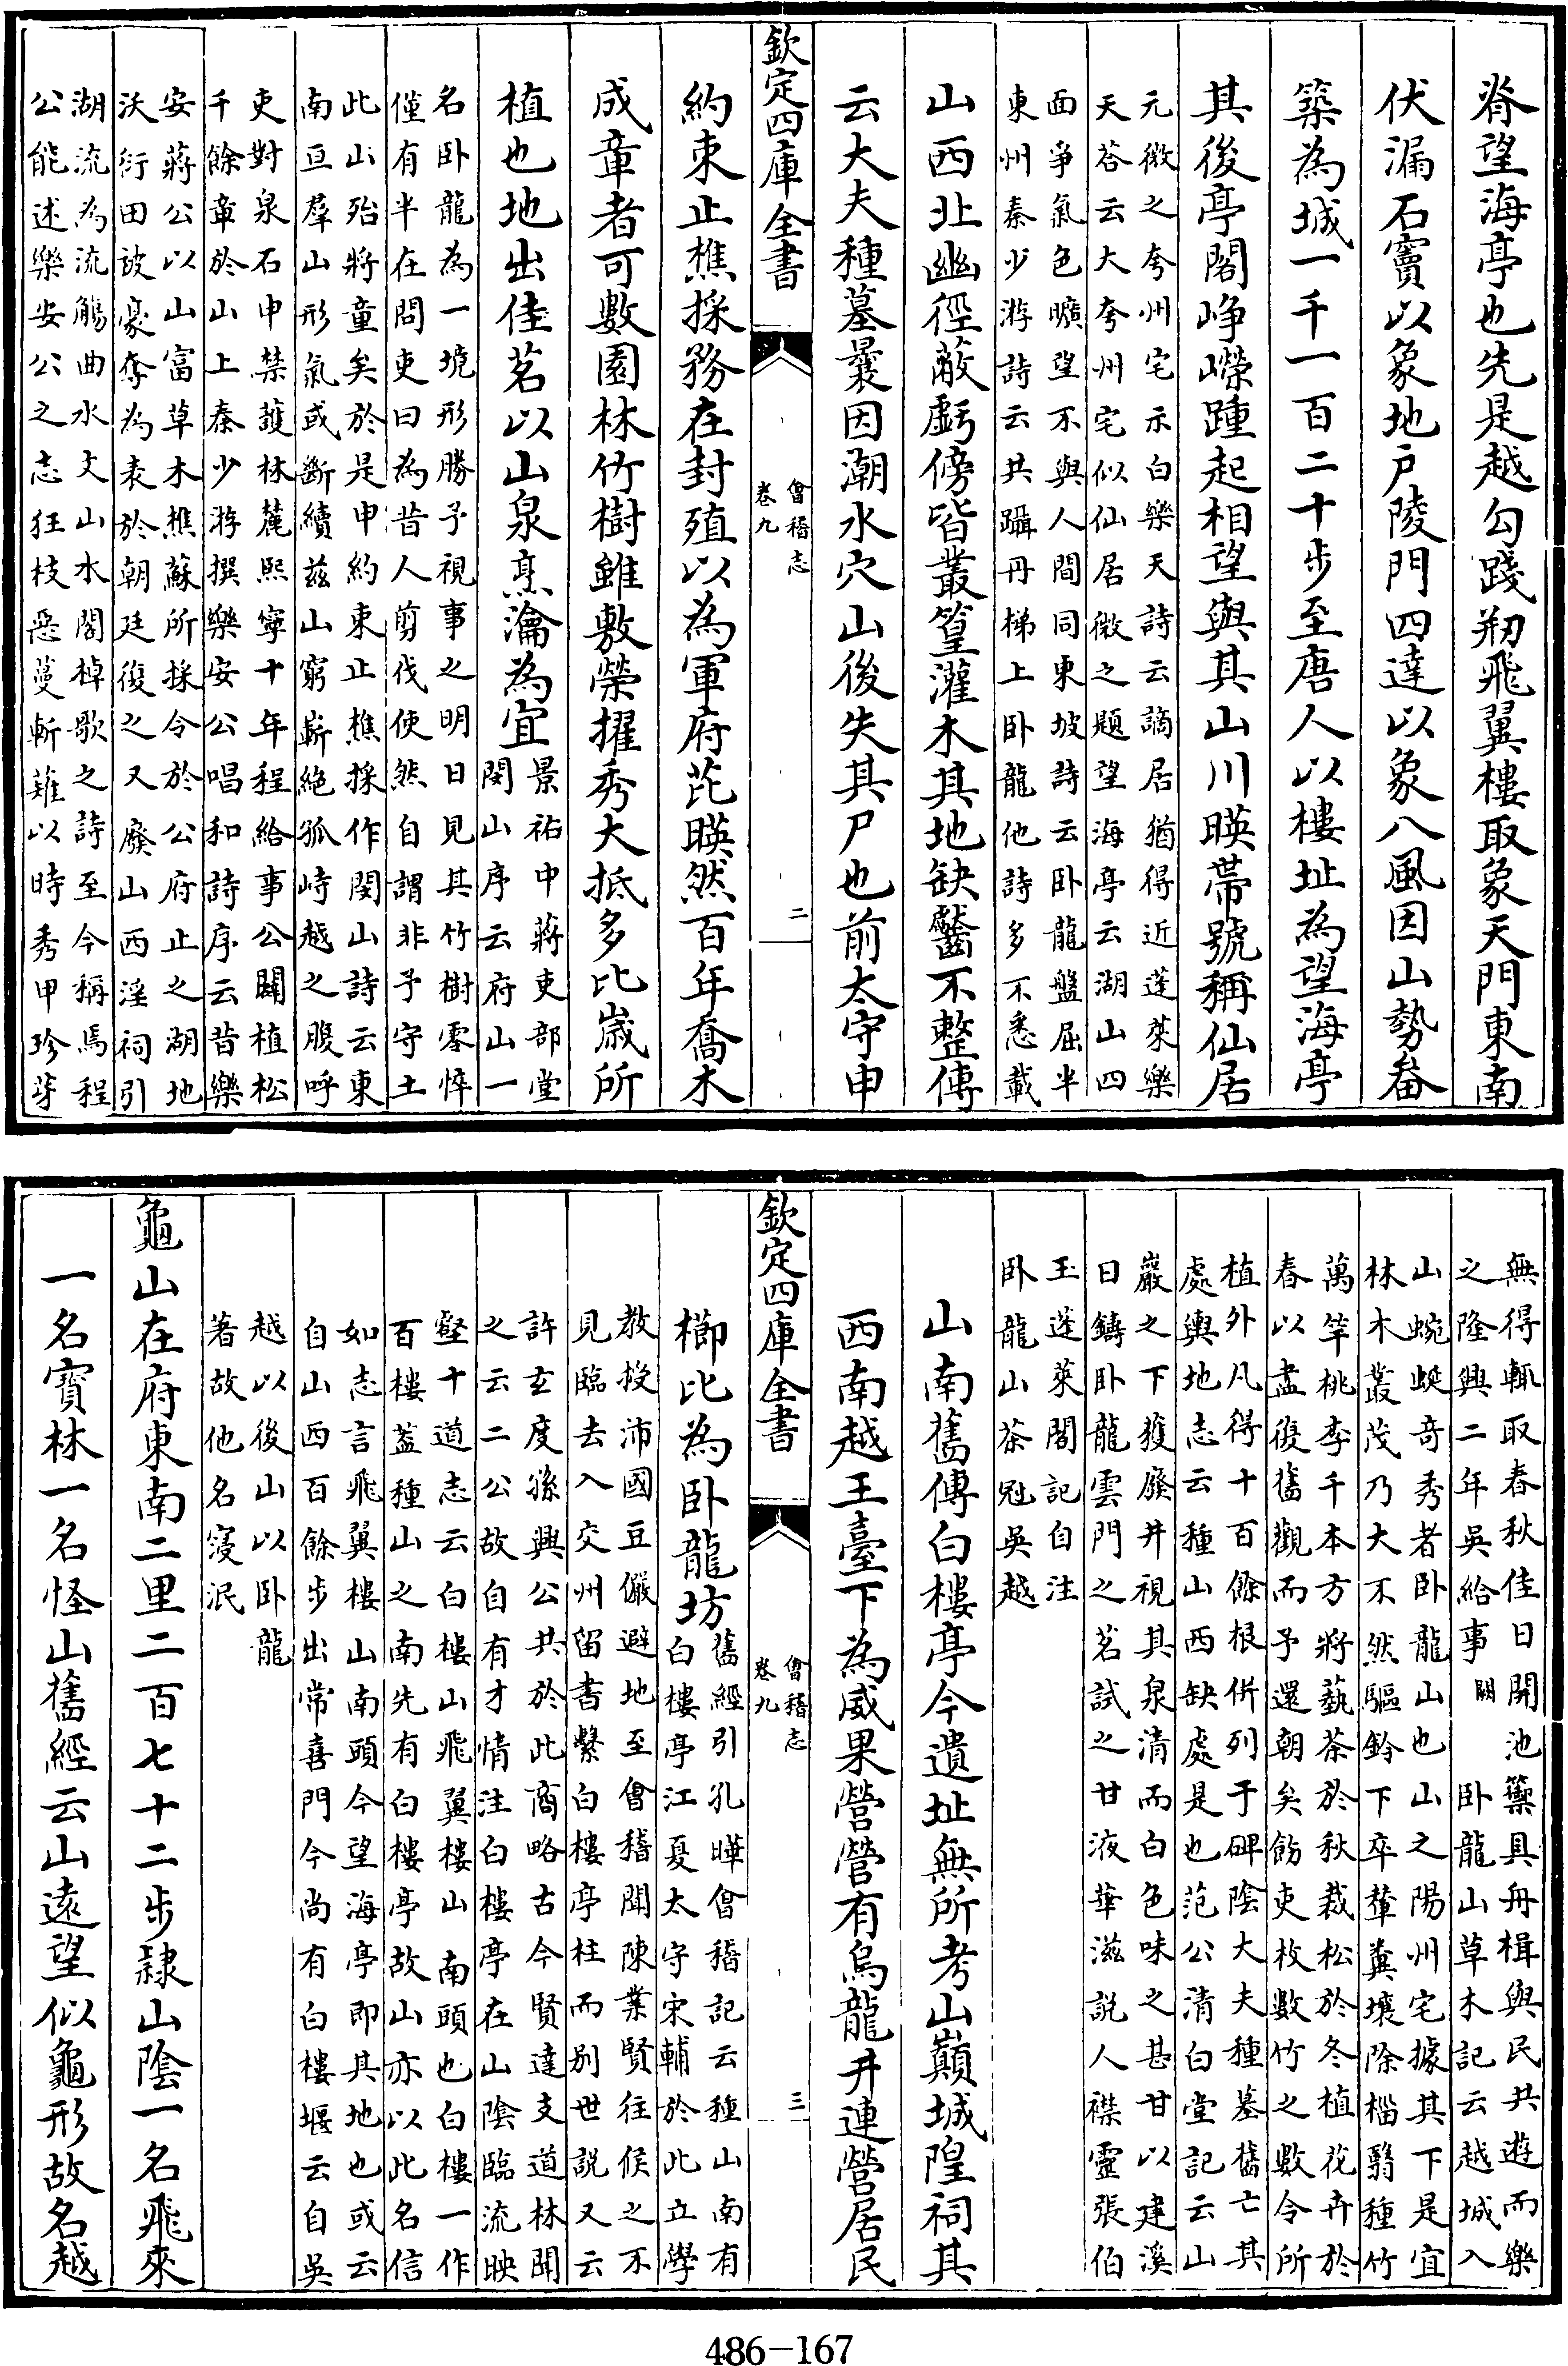 脊望海亭也先是越勾踐剏飛翼樓取象天門東南
伏漏石竇以象地戶陵門四達以象八風因山勢畚
築為城一千一百二十步至唐人以樓址為望海亭
其後亭閣崢嶸踵起相望與其山川暎帶號稱仙居
元微之夸州宅示白樂天詩云謫居猶得近蓬萊樂
天荅云大夸州宅似仙居微之題望海亭云湖山四
面爭氣色曠望不與人間同東坡詩云卧龍盤屈半
東州秦少游詩云共躡丹梯上卧龍他詩多不悉載
山西北幽徑蔽虧傍皆叢篁灌木其地缺齾不整傳
云大夫種墓曩因潮水穴山後失其尸也前太守申
欽定四庫全書
會稽志
卷九
二
約束止樵採務在封殖以為軍府芘暎然百年喬木
成章者可數園林竹樹雖敷榮擢秀大抵多比歲所
植也地出佳茗以山泉烹瀹為宜
景祐中蔣吏部堂
閔山序云府山一
名卧龍為一境形勝予視事之明日見其竹樹零悴
僅有半在問吏曰為昔人剪伐使然自謂非予守土
此山殆將童矣於是申約束止樵採作閔山詩云東
南亘羣山形氣或斷續兹山窮嶄絶孤峙越之腹呼
吏對泉石申禁護林麓熙寧十年程給事公闢植松
千餘章於山上秦少游撰樂安公唱和詩序云昔樂
安蔣公以山富草木樵蘇所採令於公府止之湖地
沃衍田詖豪奪為表於朝廷復之又廢山西淫祠引
湖流為流觴曲水文山水閣棹歌之詩至今稱焉程
公能述樂安公之志狂枝惡蔓斬薙以時秀甲珍芽
無得輒取春秋佳日開池籞具舟楫與民共遊而樂
之隆興二年吳給事
闕
卧龍山草木記云越城入
山蜿蜒奇秀者卧龍山也山之陽州宅據其下是宜
林木叢茂乃大不然驅鈴下卒輦糞壤除檔翳種竹
萬竿桃李千本方將藝茶於秋裁松於冬植花卉於
春以盡復舊觀而予還朝矣飭吏枚數竹之數令所
植外凡得十百餘根併列于碑陰大夫種墓舊亡其
處輿地志云種山西缺處是也范公清白堂記云山
巖之下獲廢井視其泉清而白色味之甚甘以建溪
日鑄卧龍雲門之茗試之甘液華滋説人襟靈張伯
玉蓬萊閣記自注
卧龍山茶冠吳越
山南舊傳白樓亭今遺址無所考山巔城隍祠其
西南越王臺下為威果營營有烏龍井連營居民
欽定四庫全書
會稽志
卷九
三
櫛比為卧龍坊
舊經引孔曄會稽記云種山南有
白樓亭江夏太守宋輔於此立學
教授沛國豆儼避地至會稽聞陳業賢往候之不
見臨去入交州留書繫白樓亭柱而别世説又云
許玄度孫興公共於此商略古今賢達支道林聞
之云二公故自有才情注白樓亭在山陰臨流映
壑十道志云白樓山飛翼樓山南頭也白樓一作
百樓葢種山之南先有白樓亭故山亦以此名信
如志言飛翼樓山南頭今望海亭即其地也或云
自山西百餘步出常喜門今尚有白樓堰云自吳
越以後山以卧龍
著故他名寖泯
龜山在府東南二里二百七十二步隷山陰一名飛來
一名寳林一名怪山舊經云山遠望似龜形故名越
486-167